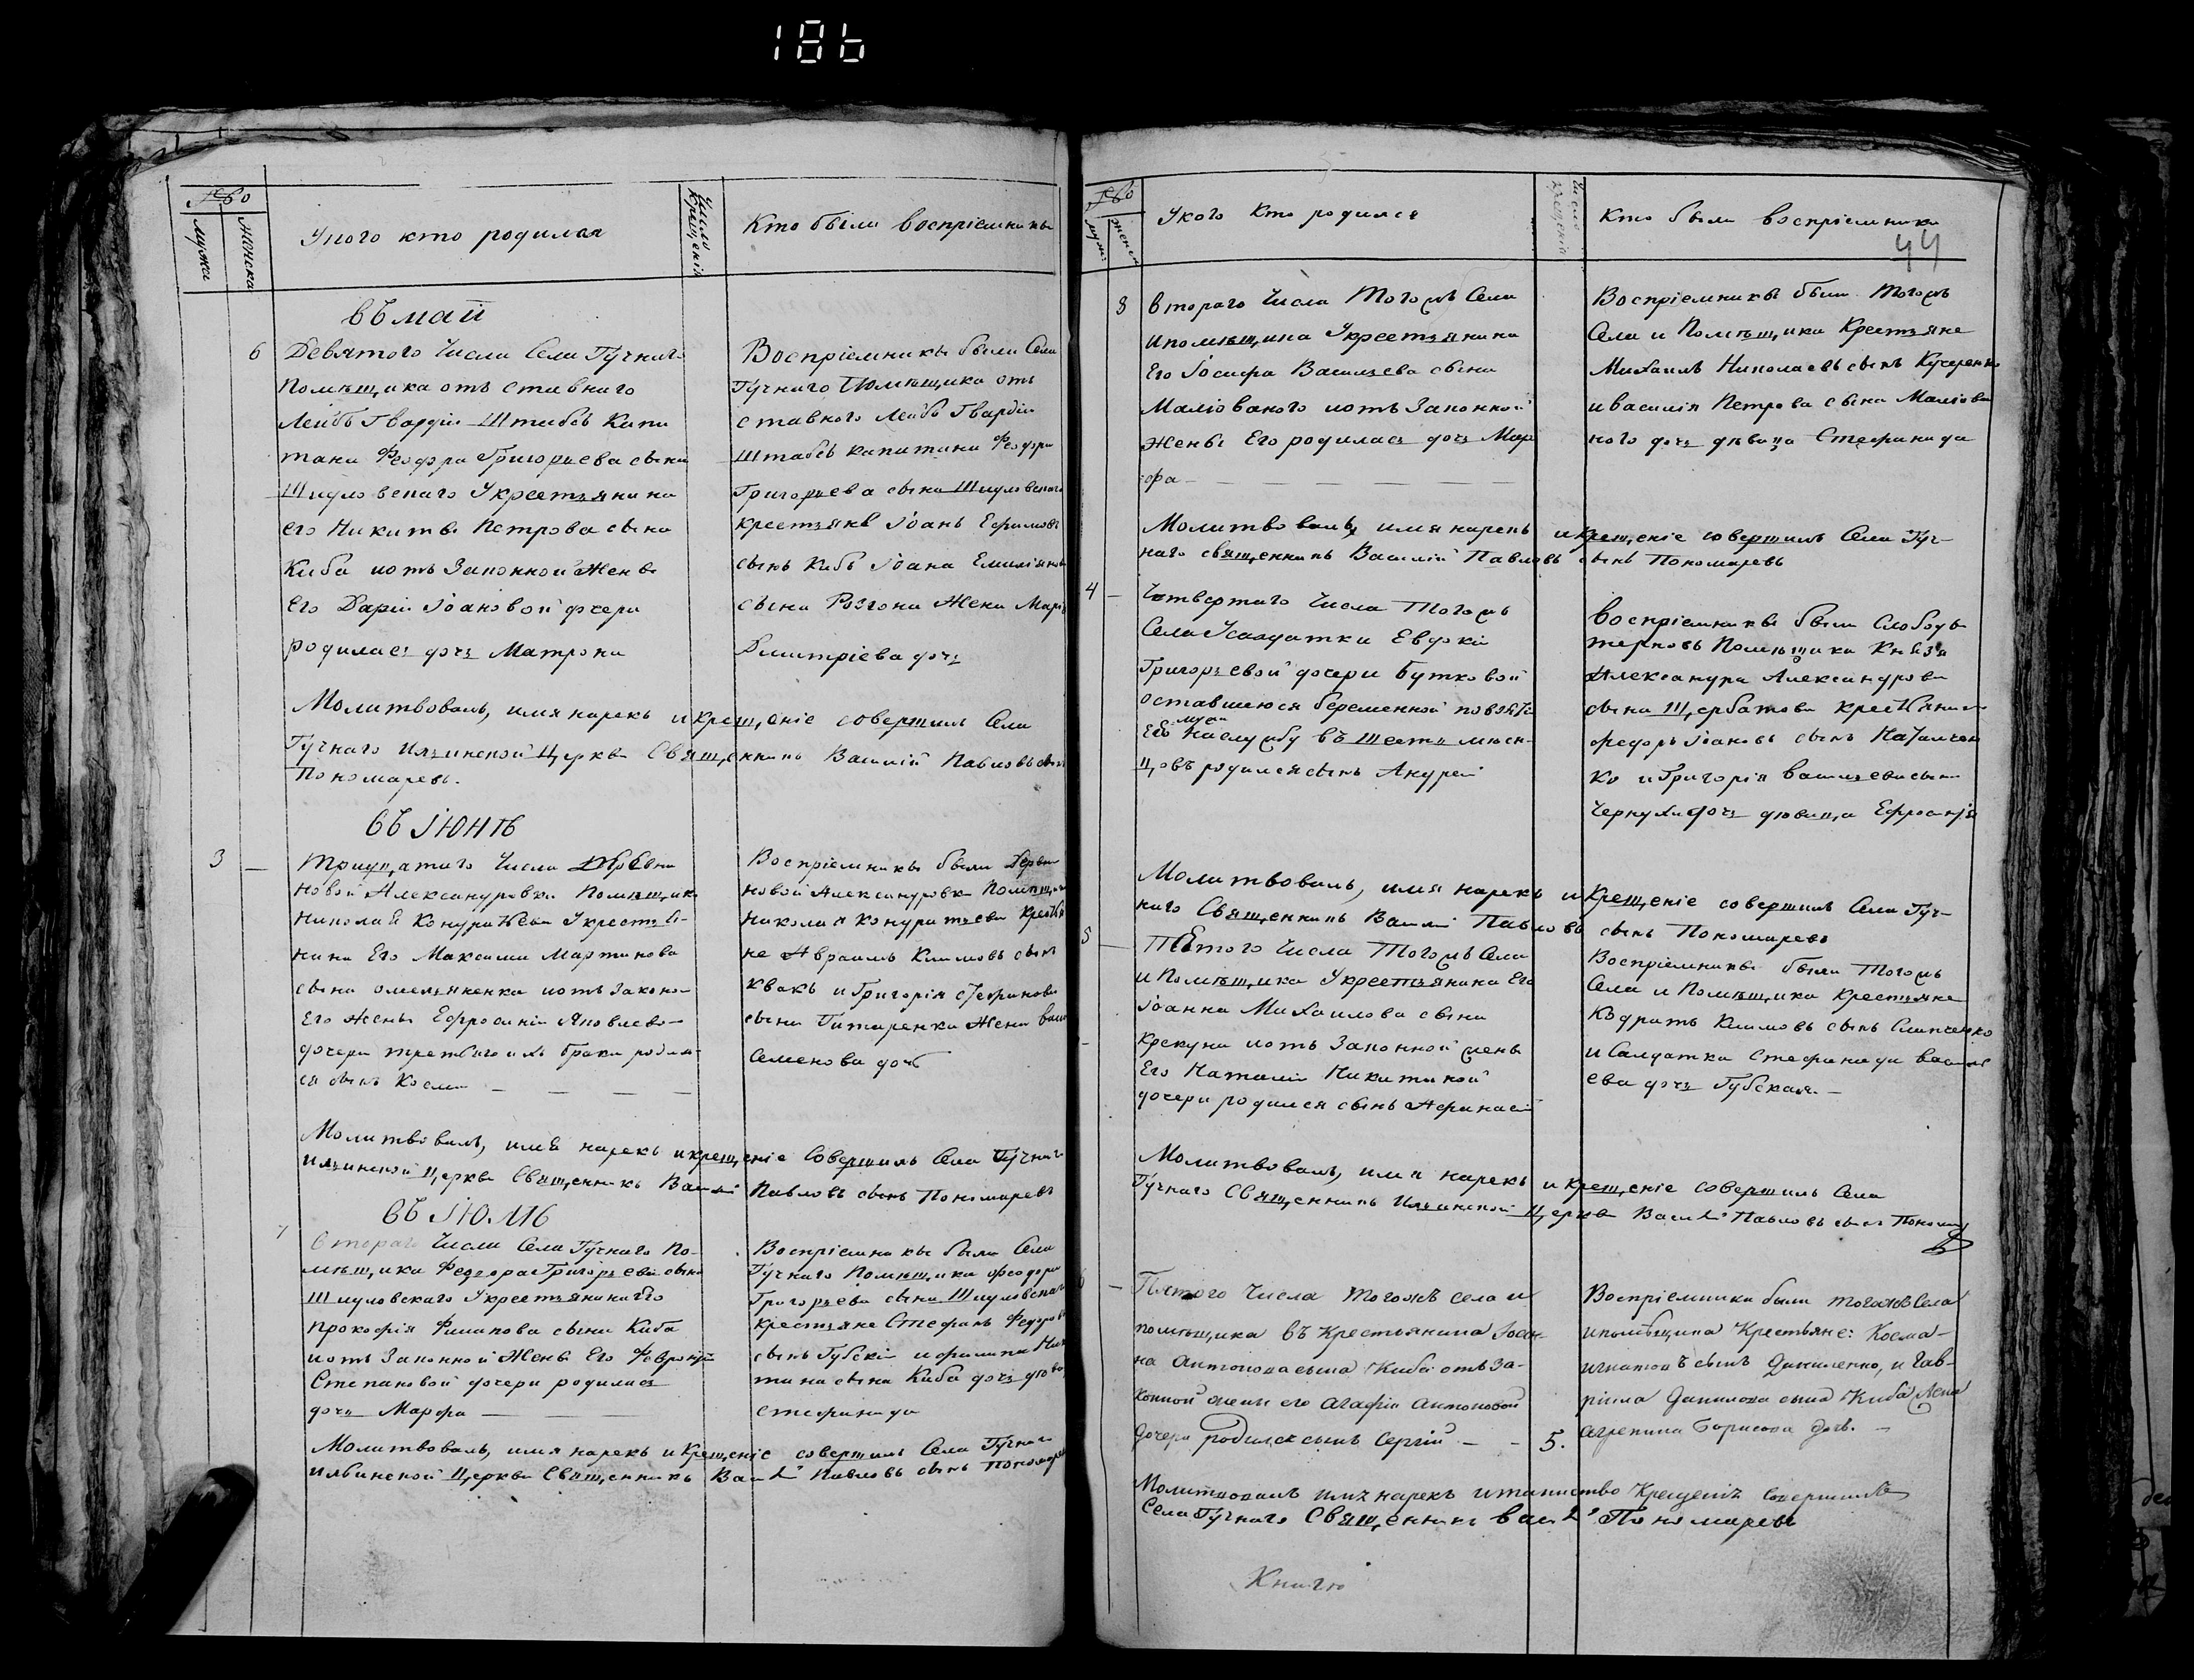 186
№
мужска
женска
У кого кто родился
Число крещенія
Кто были воспріемники
Въ маіи
6
Девятого Числа Села Гучнаго
Помѣщика отъ ставнаго
Лейбъ Гвардіи Штабсъ Капи
тана Феодора Григорьева сына
Шидловскаго Укрестьянина
его Никиты Петрова сына
Киба иотъ Законной Жены
Его Даріи Іоановой дочери
родилась дочь Матрона
Воспріемники были Села
Гучнаго Помѣщика отъ
ставного Лейбъ Гвардіи
Штабсъ капитана Феодора
Григорьева сына Шидловскаго
крестьяне Іоанъ Ефимовъ
сынъ Киба Іоана Емиліянова
сына Розгона Жена Марія
Димитріева дочь
Молитвовалъ, имя нарекъ и крещеніе совершилъ Села
Гучнаго Ильинской Церкви Священникъ Василій Павловъ сынъ
Пономаревъ.
Въ Іюнѣ
3
Тридцатаго Числа Деревни
новой Александровки Помѣщика
Николая Кондратьева Укрестья-
нина Его Максима Мартинова
сына омельяненка иотъ Законо-
Его жены Ефросиніи Яковлево-
дочери третьяго ихъ брака родил-
ся сынъ Косма
Воспріемники были Деревни
новой Александровки Помѣщика
Николая Кондратьева Крестья
не Авраамъ Климовъ сынъ
Квакъ и Григорія стефанова
сына Титаренка Жена Васи
Семенова дочь
Молитвовалъ, имя нарекъ икрещеніе Совершилъ Села Гучнаго
Ильинской Церкви Священникъ Василій Павловъ сынъ Пономаревъ
Въ Іюлѣ
7
Втораго Числа Села Гучнаго По-
мѣщика Феодора Григорьева сына
Шидловскаго Укрестьянина Его
Прокофія Филипова сына Киба
иотъ Законной Жены Его Февроніи
Степановой дочери родилась
дочь Марфа
Воспріемники были Села
Гучнаго Помѣщика Феодора
Григорьева сына Шидловскаго
Крестьяне Стефанъ Федоровъ
сынъ Губскій ифилипа Ники
тина сына Киба дочь девица
стефанида
Молитвовалъ, имя нарекъ и Крещеніе совершилъ Села Гучнаго
Ильинской Церкви Священникъ Василій Павловъ сынъ Пономаревъ
№
муж:
женск
Укого Кто родился
Число крещенія
Кто были воспріемники
44
8
Втораго Числа Тогожъ Села
ипомѣщика Укрестьянина
Его Іосифа Васильева сына
Маліованого иотъ Законной
Жены Его родилась дочь Мар
фа
Воспріемники были Тогожъ
Села и Помѣщика Крестьяне
Михаилъ Николаевъ сынъ Кучеренко
иВасилія Петрова сына Маліова
ного дочь дѣвица Стефанида
Молитвовалъ, имя нарекъ и Крещеніе совершилъ Села Гуч-
наго священникъ Василій Павловъ сынъ Пономаревъ
4
Четвертаго Числа Тогожъ
Села Усолдатки Евдокіи
Григорьевой дочери Бутковой
оставшеюся беременной повзятіи
мужа
Его наслужбу въ Шести мѣся-
цовъ родился сынъ Андрей
Воспріемники были Слободы
терновъ Помѣщика Князя
Александра Александрова
сына Щербатова крестьянинъ
Федоръ Іоановъ сынъ
ко и Григорія Васильева сына
Чернухи дочь дѣвица Ефросинія
Молитвовалъ, имя нарекъ и Крещеніе совершилъ Села Гуч-
наго Священникъ Василій Павловъ сынъ Пономаревъ
5
Пятого Числа Тогожъ Села
и Помѣщика Укрестьянина Его
Іоанна Михаилова сына
Крекуна иотъ Законной жены
Его Наталіи Никитиной
дочери родился сынъ Афанасій
Воспріемники были Тогожъ
Села и Помѣщика Крестьяне
Кодратъ Климовъ сынъ Слипченко
и Салдатка Стефанида Василь
ева дочь Губская.
Молитвовалъ, имя нарекъ и Крещеніе совершилъ Села
Гучнаго Священникъ Ильинской Церкви Василій Павловъ сынъ Пономар
Пятого Числа тогожъ села и
помѣщика въ Крестьянина Іоан-
на Антонова сына Киба отъ за-
конной жены его Агафіи Антоновой
дочери родился сынъ Сергій - - 5.
Воспріемники были тогожъ Села
ипомѣщика Крестьяне: Косма-
игнатовъ сынъ Даниленко, и Гав-
ріила Данилова сына Киба Жена
Агрепина Борисова дочь.
Молитвовалъ имя нарекъ итаинство Крещенія совершилъ
Села Гучнаго Священникъ Василій Пономаревъ
Книгю